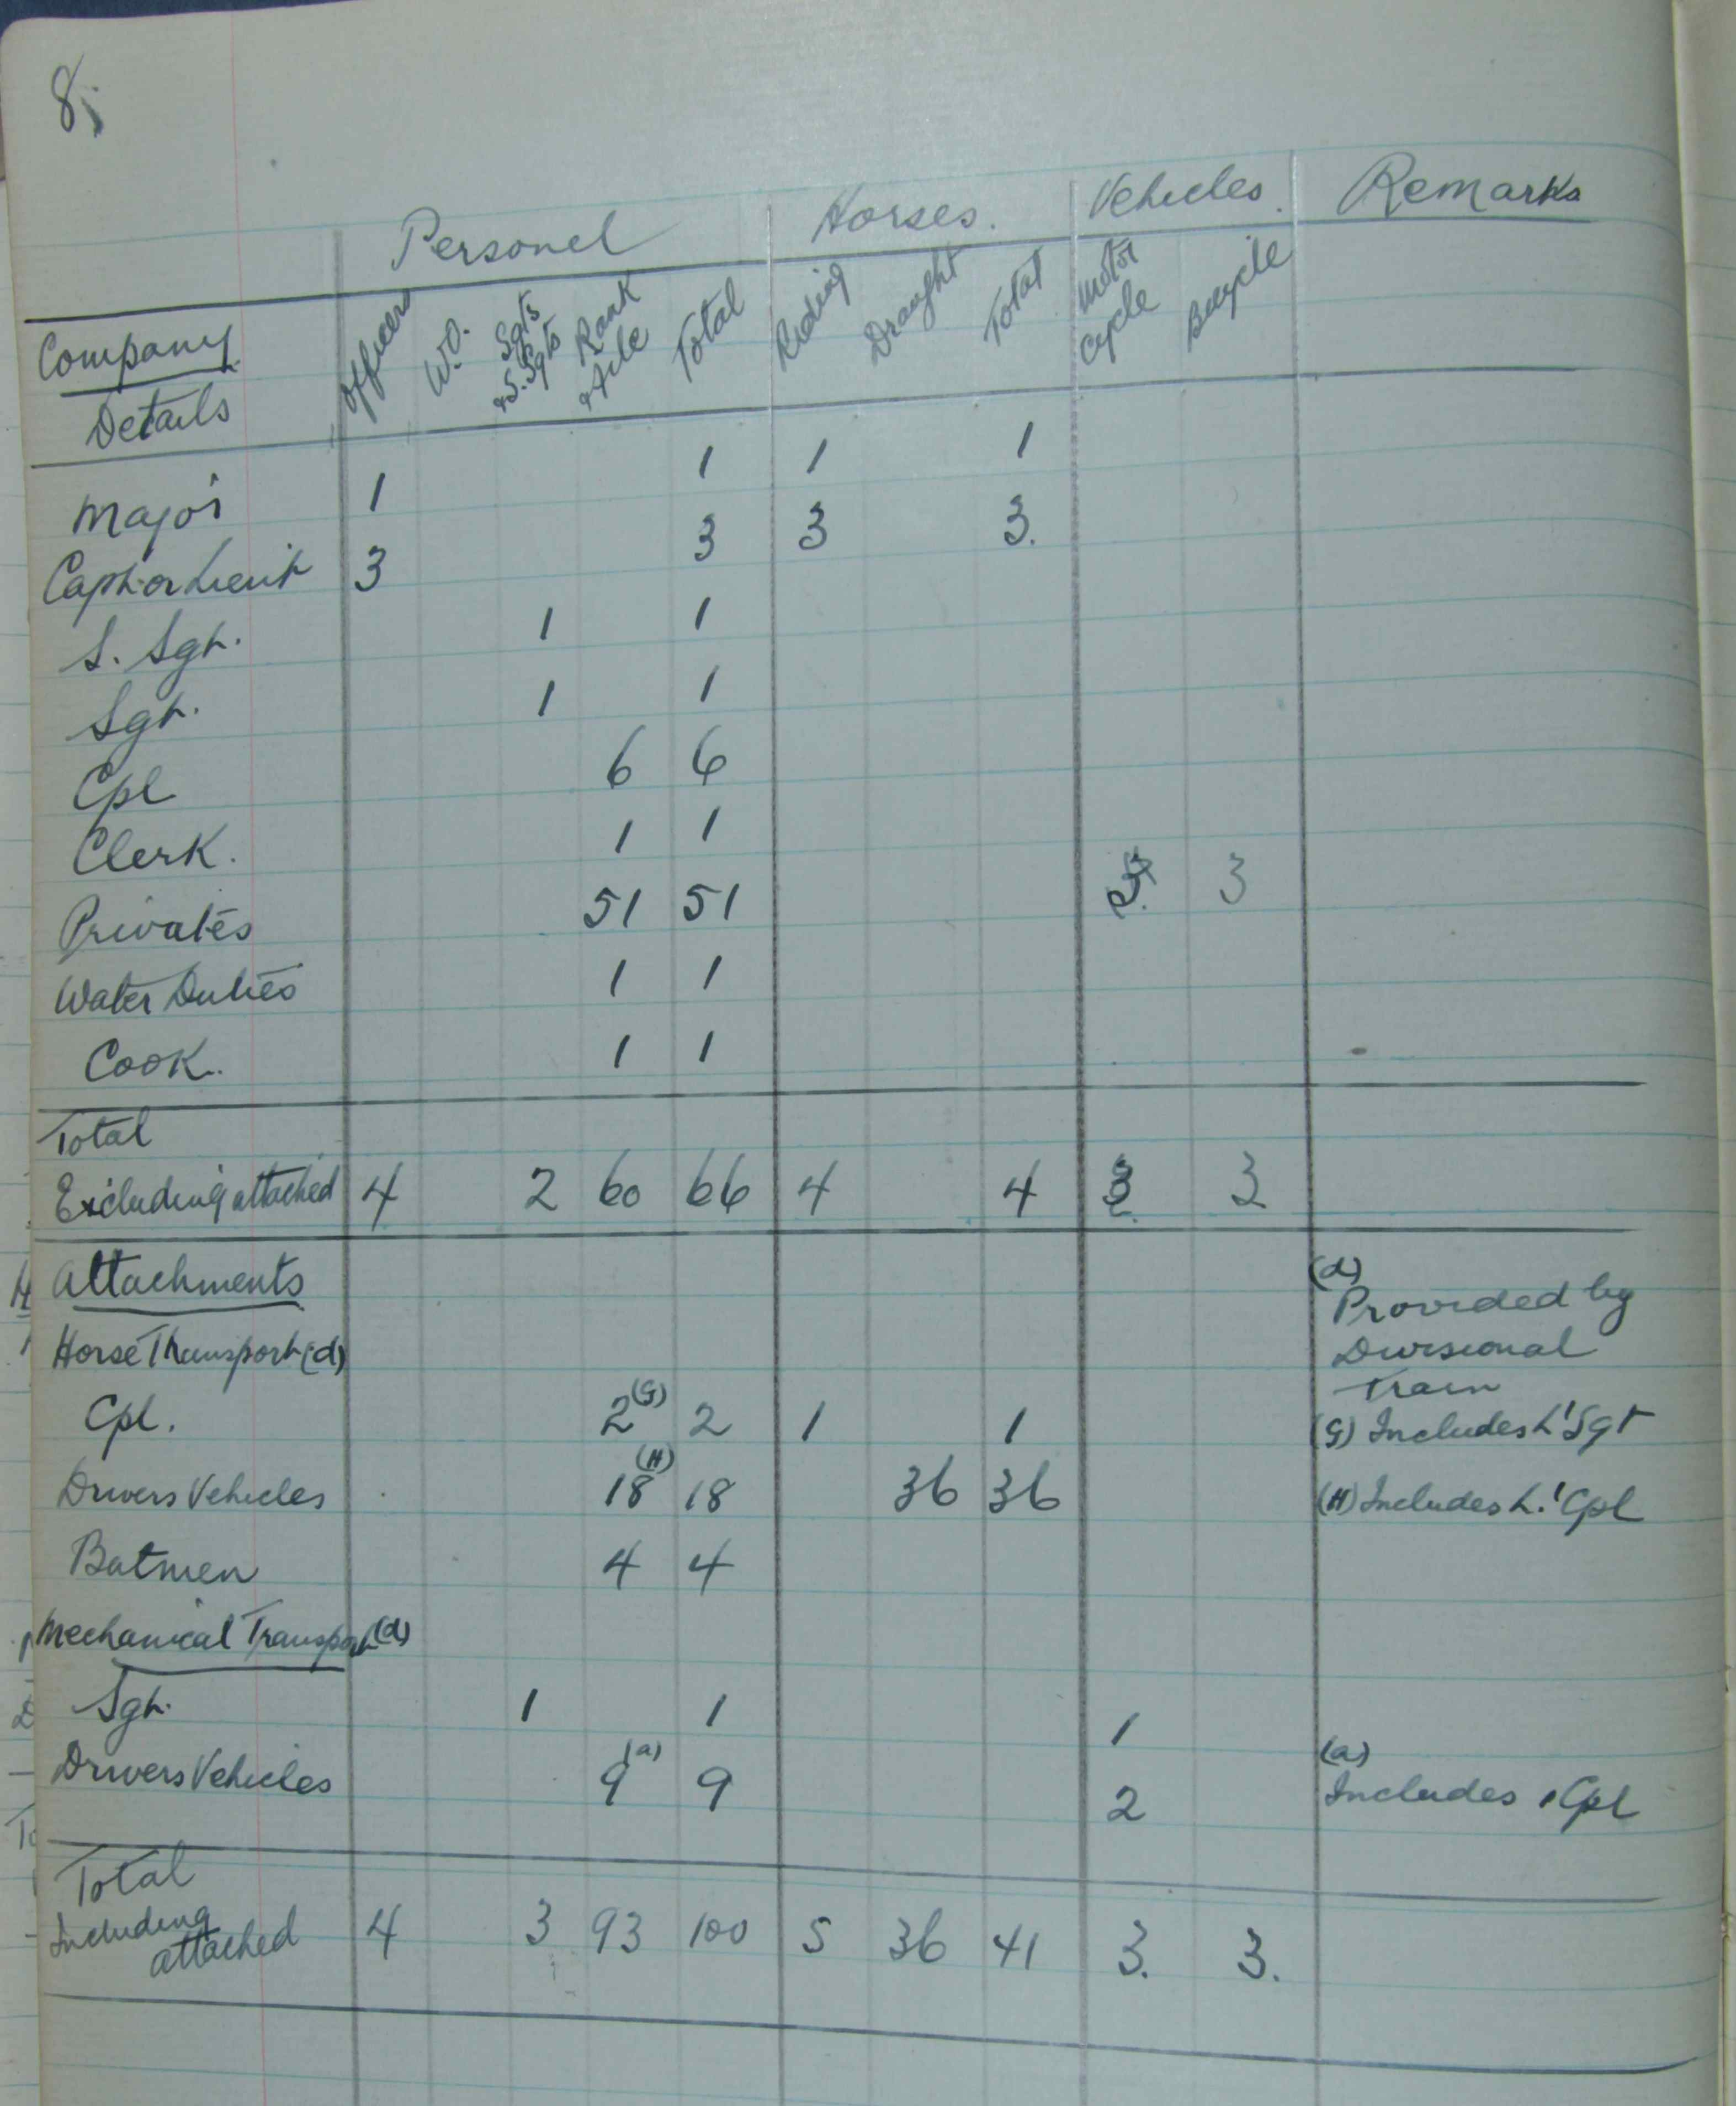 8;
Personel Horses. Vehicles. Remarks
Company Officers W.O. Sgts & S. Sgts Rank & File Total Riding Draught Total Motor Cycle Bicycle
Details
Major 1 1 1 1
Capt or Lieut 3 3 3 3.
S. Sgt. 1 1
Sgt. 1 1
Cpl 6 6
Clerk. 1 1
Privates 51 51 3
Water Duties 1 1
Cook. 1 1
Total
Excluding attached 4 2 60 66 4 4 3 3
Attachments (d)
Provided by
Horse Transport (d) Divisional
Train
Cpl. 2(G) 2 1 1 (G) Includes L'Sgt
Drivers Vehicles 18(H) 18 36 36 (H) Includes L.'Cpl
Batmen 4 4
Mechanical Transport (d)
Sgt. 1 1 1
Drivers Vehicles 9(a) 9 2 (a)
Includes 1 Cpl
Total
Including
attached 4 3 93 100 5 36 41 3. 3.